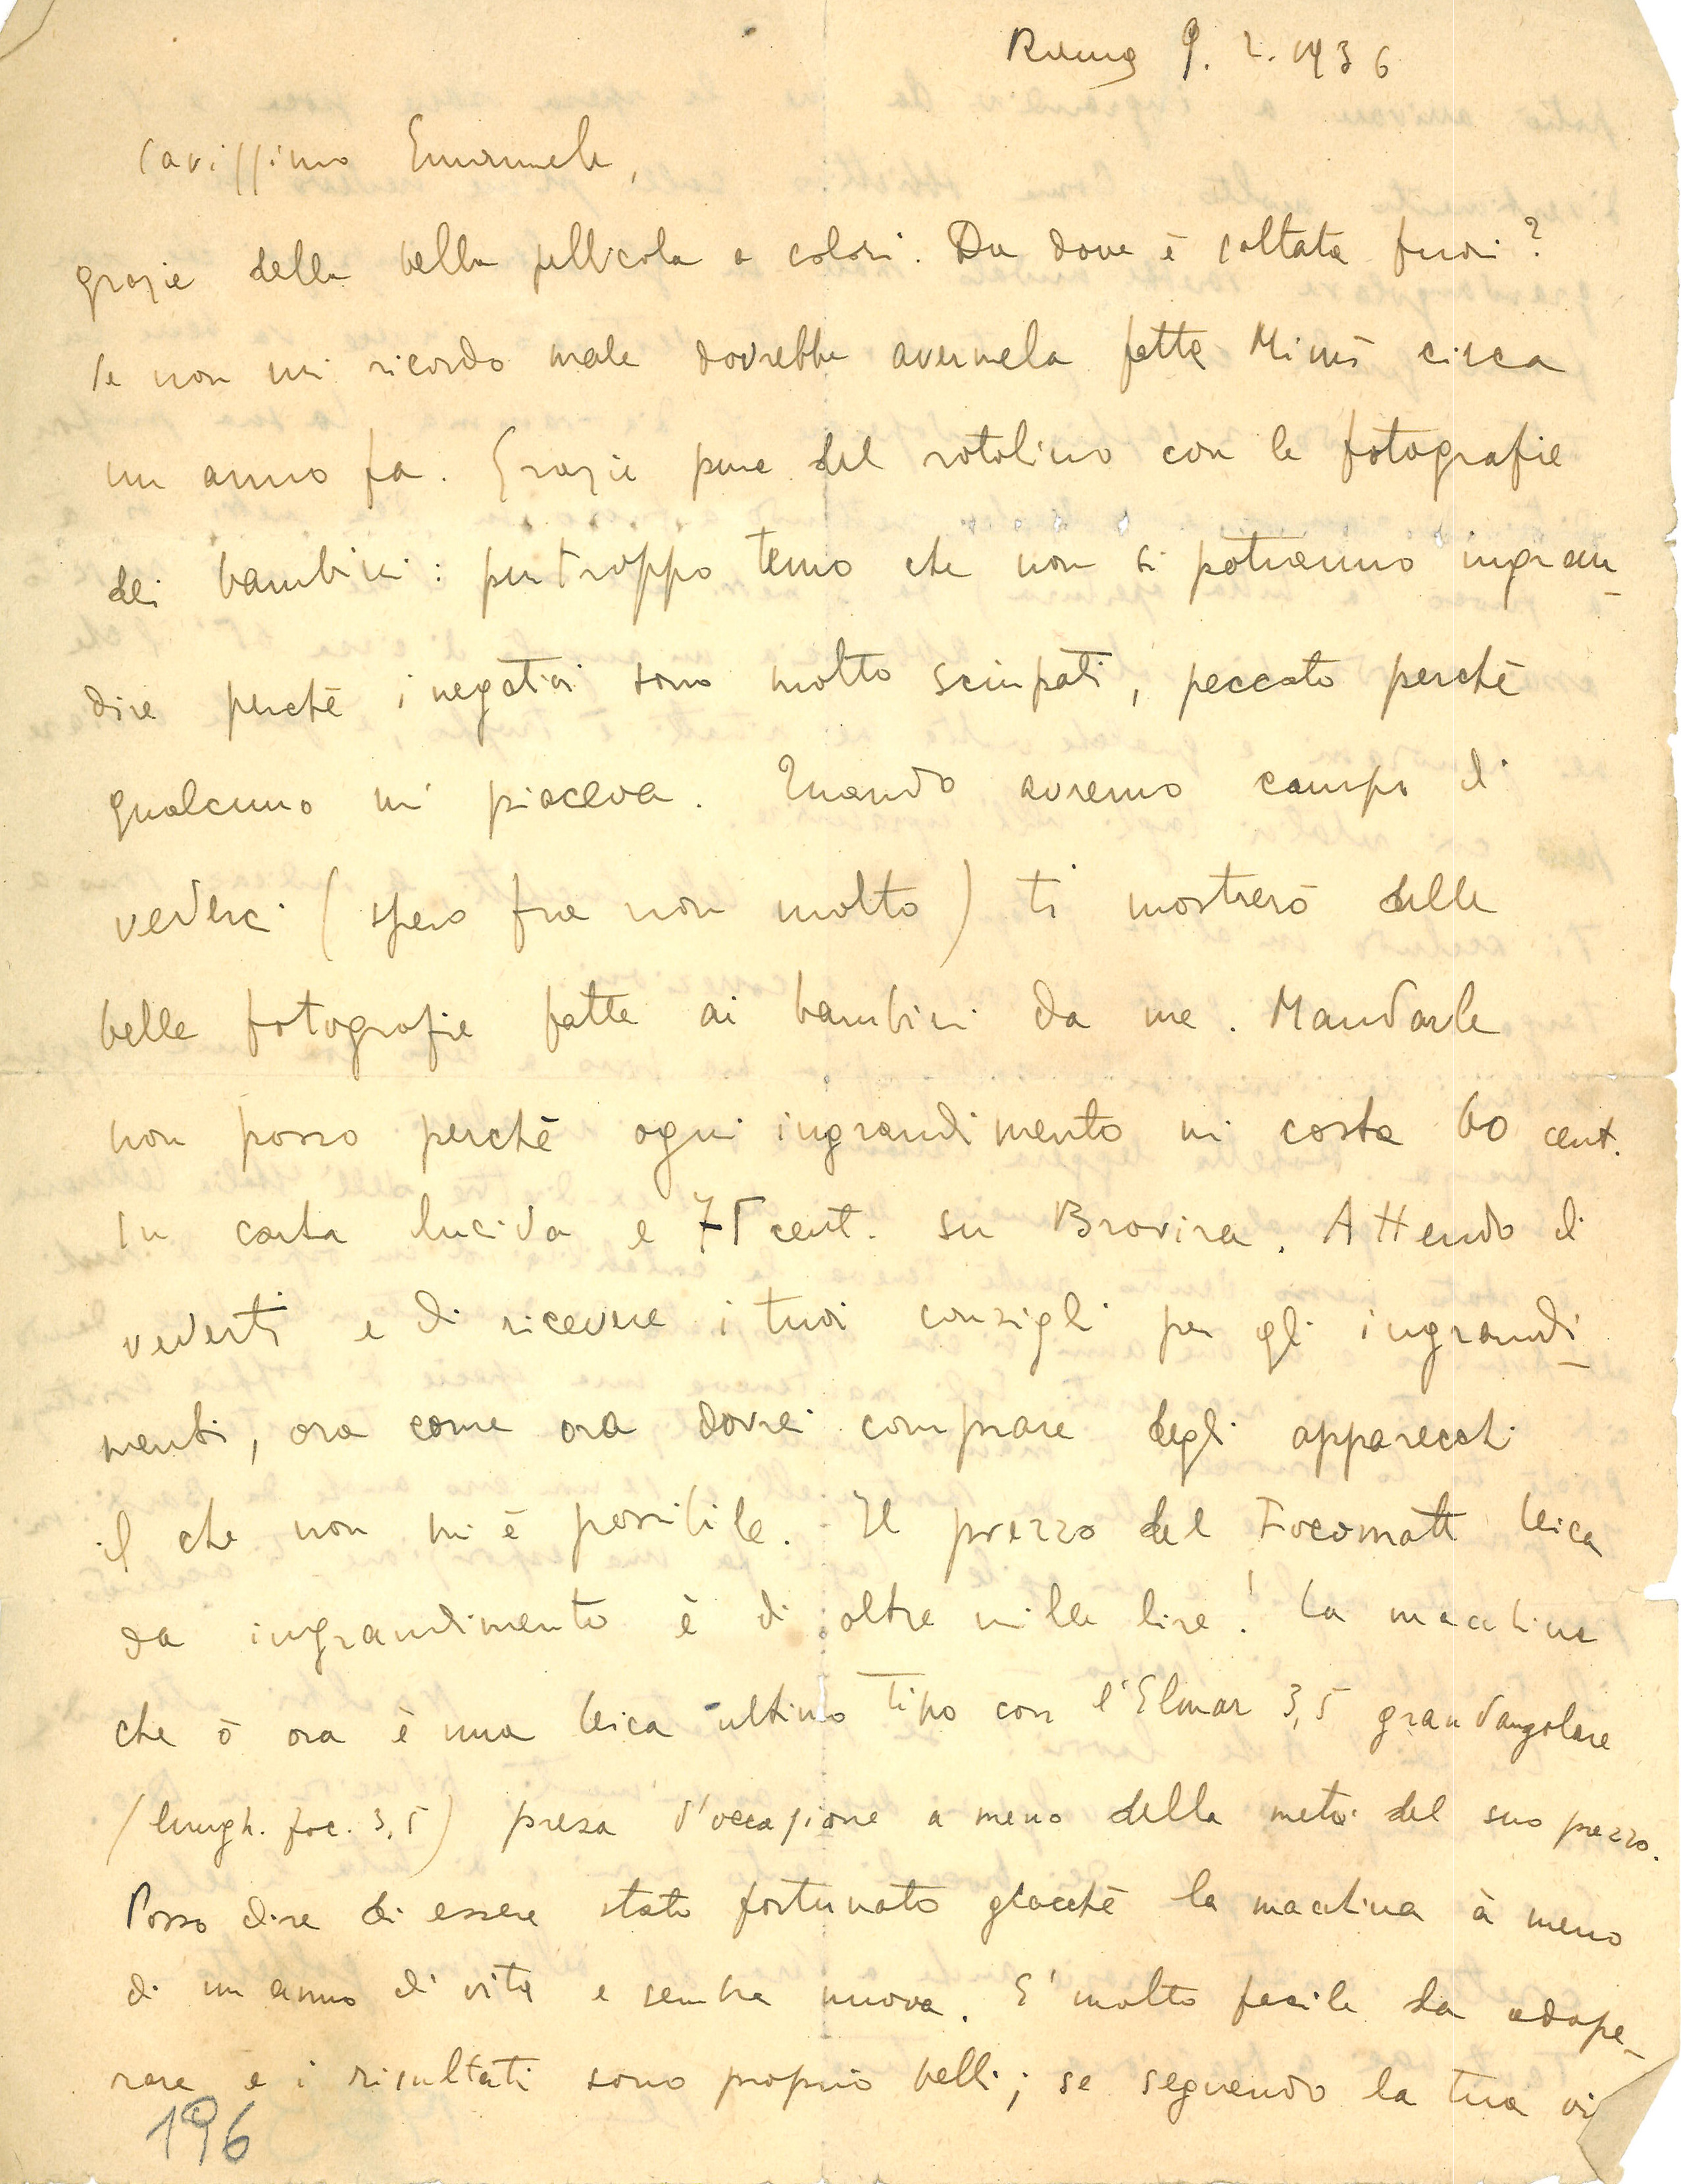 Roma 9. 2. 1936
Carissimo Emanuele,
grazie della bella pellicola a colori. Da dove è saltata fuori?
Se non mi ricordo male dovrebbe avermela fatta Mimì circa
un anno fa. Grazie pure del rotolino con le fotografie
dei bambini: purtroppo temo che non si potranno ingran_
dire perchè i negativi sono molto sciupati, peccato perchè
qualcuno mi piaceva. Quando avremo campo di
vederci (spero fra non molto) ti mostrerò delle
belle fotografie fatte ai bambini da me. Mandarle
non posso perchè ogni ingrandimento mi costa 60 cent.
su carta lucida e 75 cent. su Brovira. Attendo di
vederti e di ricevere i tuoi consigli per gli ingrandi_
menti, ora come ora dovrei comprare degli apparecchi
il che non mi è possibile. Il prezzo del Focomatt Leica
da ingrandimento è di oltre mille lire! La macchina
che ò ora è una Leica ultimo tipo con l'Elmar 3,5 grandangolare
(lungh. foc. 3,5) presa d'occasione a meno della metà del suo prezzo.
Posso dire di essere stato fortunato giacchè la macchina à meno
di un anno di vita e sembra nuova. E' molto facile da adope_
rare e i risultati sono proprio belli; se seguendo la tua
196